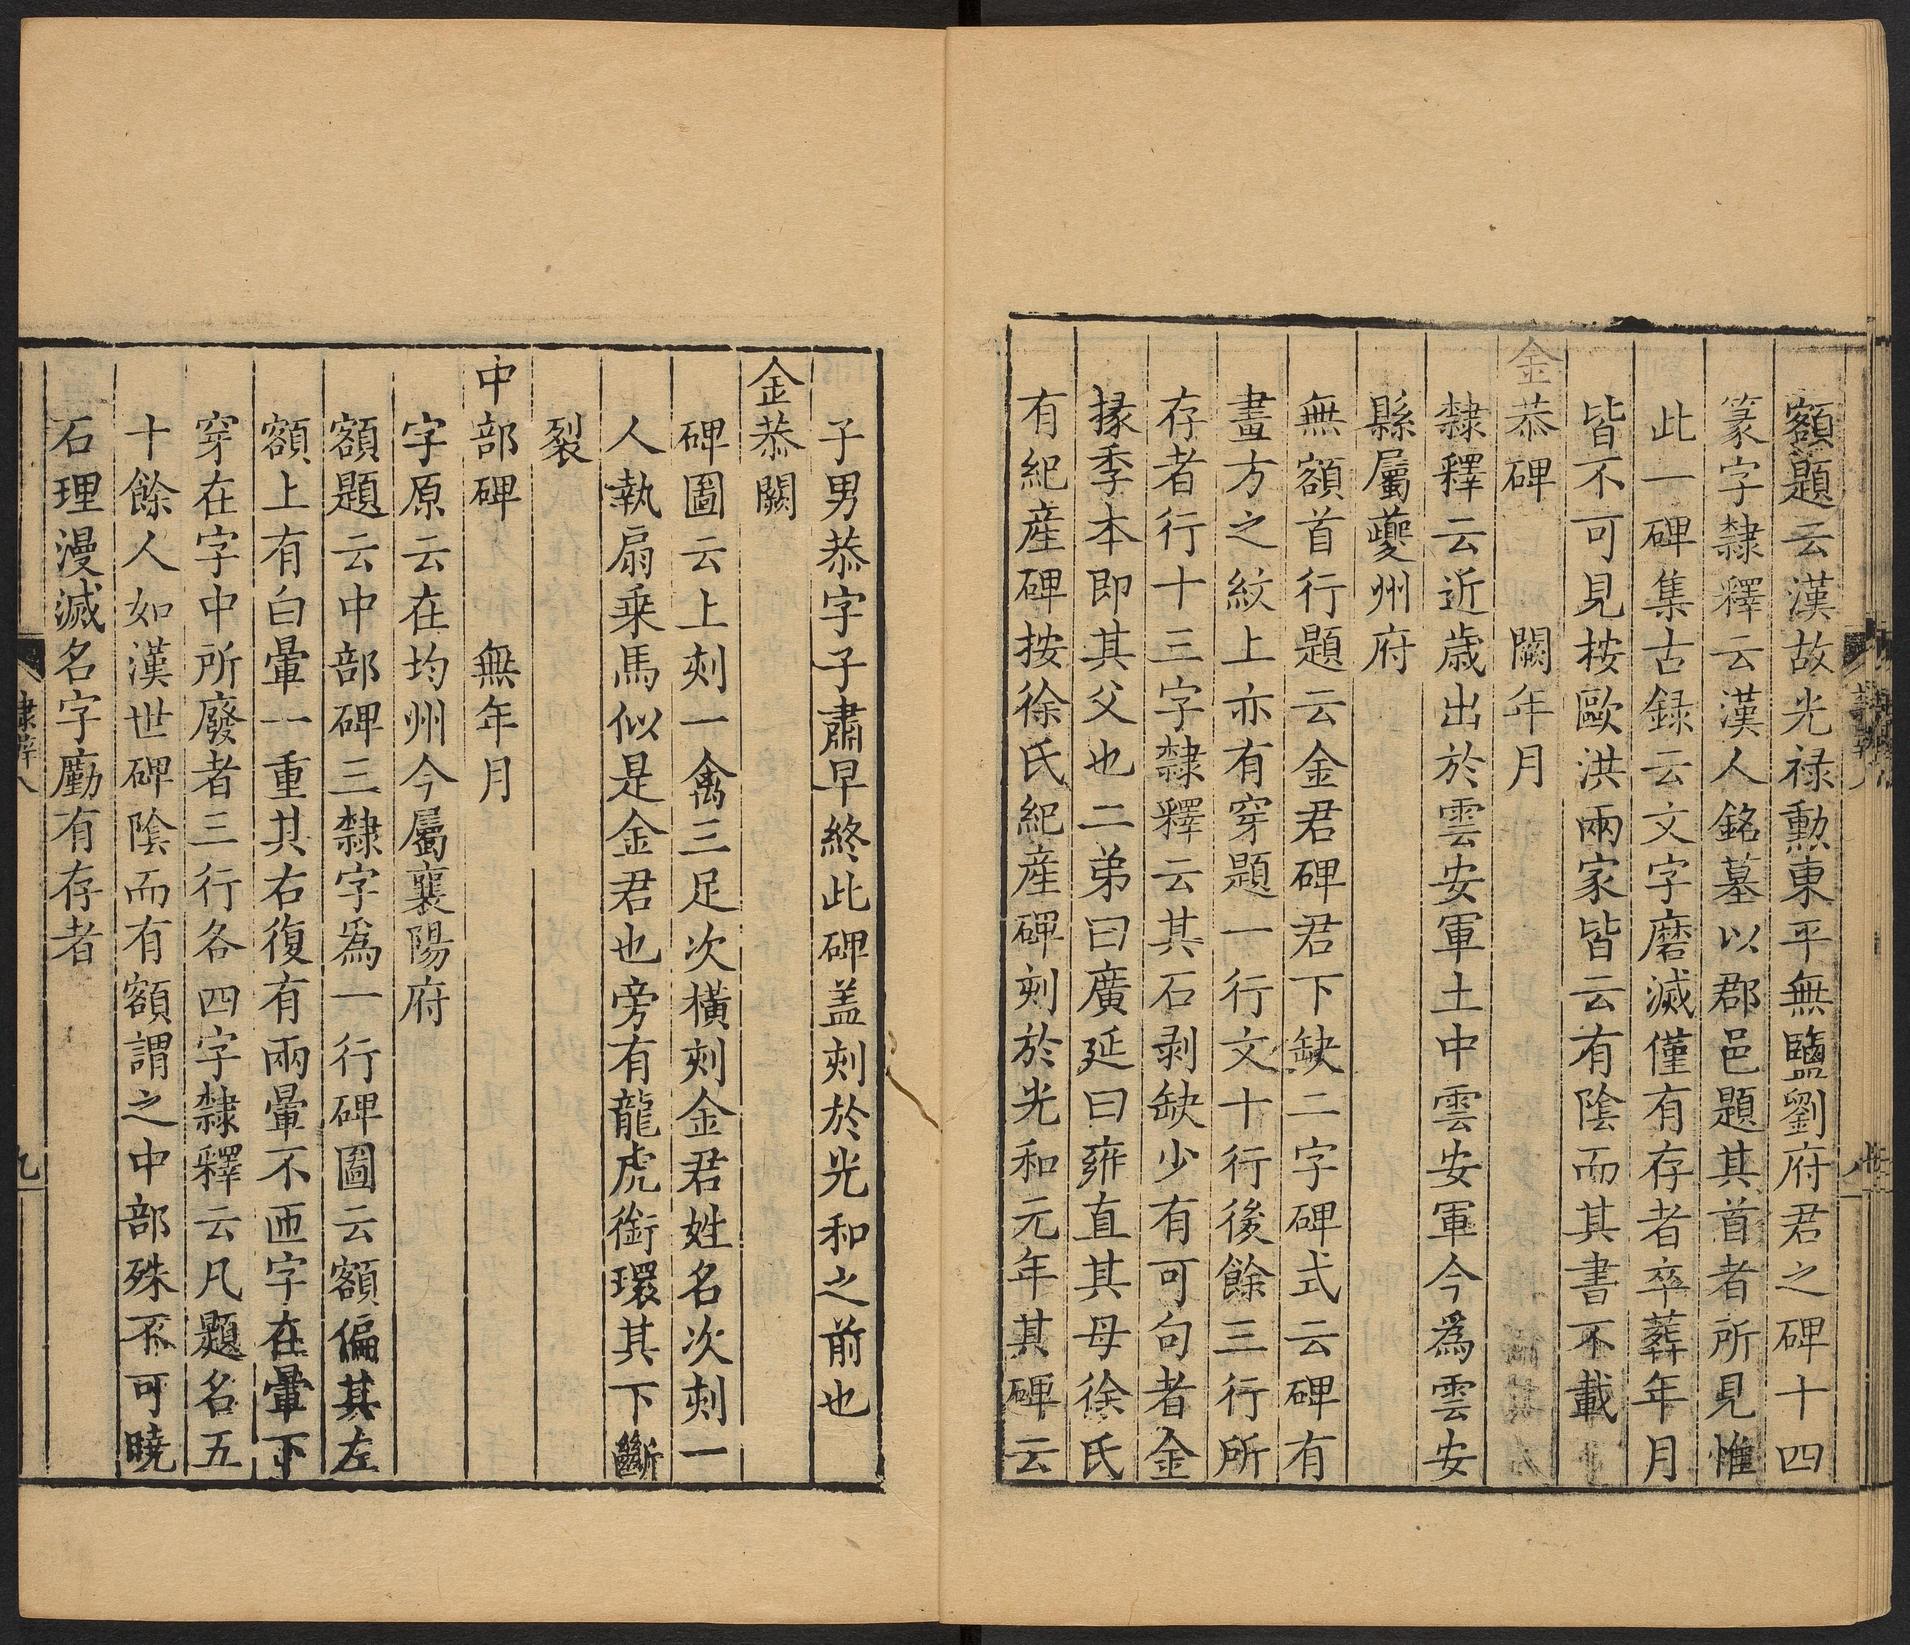 額題云漢故光祿勳東平無鹽劉府君之碑十四
篆字隸釋云漢人銘墓以郡邑題其首者所見惟
此一碑集古録云文字磨滅僅有存者卒葬年月
皆不可見按歐洪兩家皆云有陰而其書不載
金恭碑 闕年月
隸釋云近歳出於雲安軍土中雲安軍今爲雲安
縣屬夔州府
無額首行題云金君碑君下缺二字碑式云碑有
畫方之紋上亦有穿題一行文十行後餘三行所
存者行十三字隸釋云其石剥缺少有可句者金
掾季本即其父也二弟曰廣延曰雍直其母徐氏
有紀産碑按徐氏紀産碑刻於光和元年其碑云
子男恭字子肅早終此碑盖刻於光和之前也
金恭闕
碑圖云上刻一禽三足次横刻金君姓名次刻一
人執扇乗馬似是金君也旁有龍虎銜環其下斷
裂
中部碑 無年月
字原云在均州今屬襄陽府
額題云中部碑三隸字爲一行碑圖云額偏其左
額上有白暈一重其右復有兩暈不匝字在暈下
穿在字中所廢者三行各四字隸釋云凡題名五
十餘人如漢世碑陰而有額謂之中部殊不可曉
石理漫滅名字勵有存者
隸辨八
九